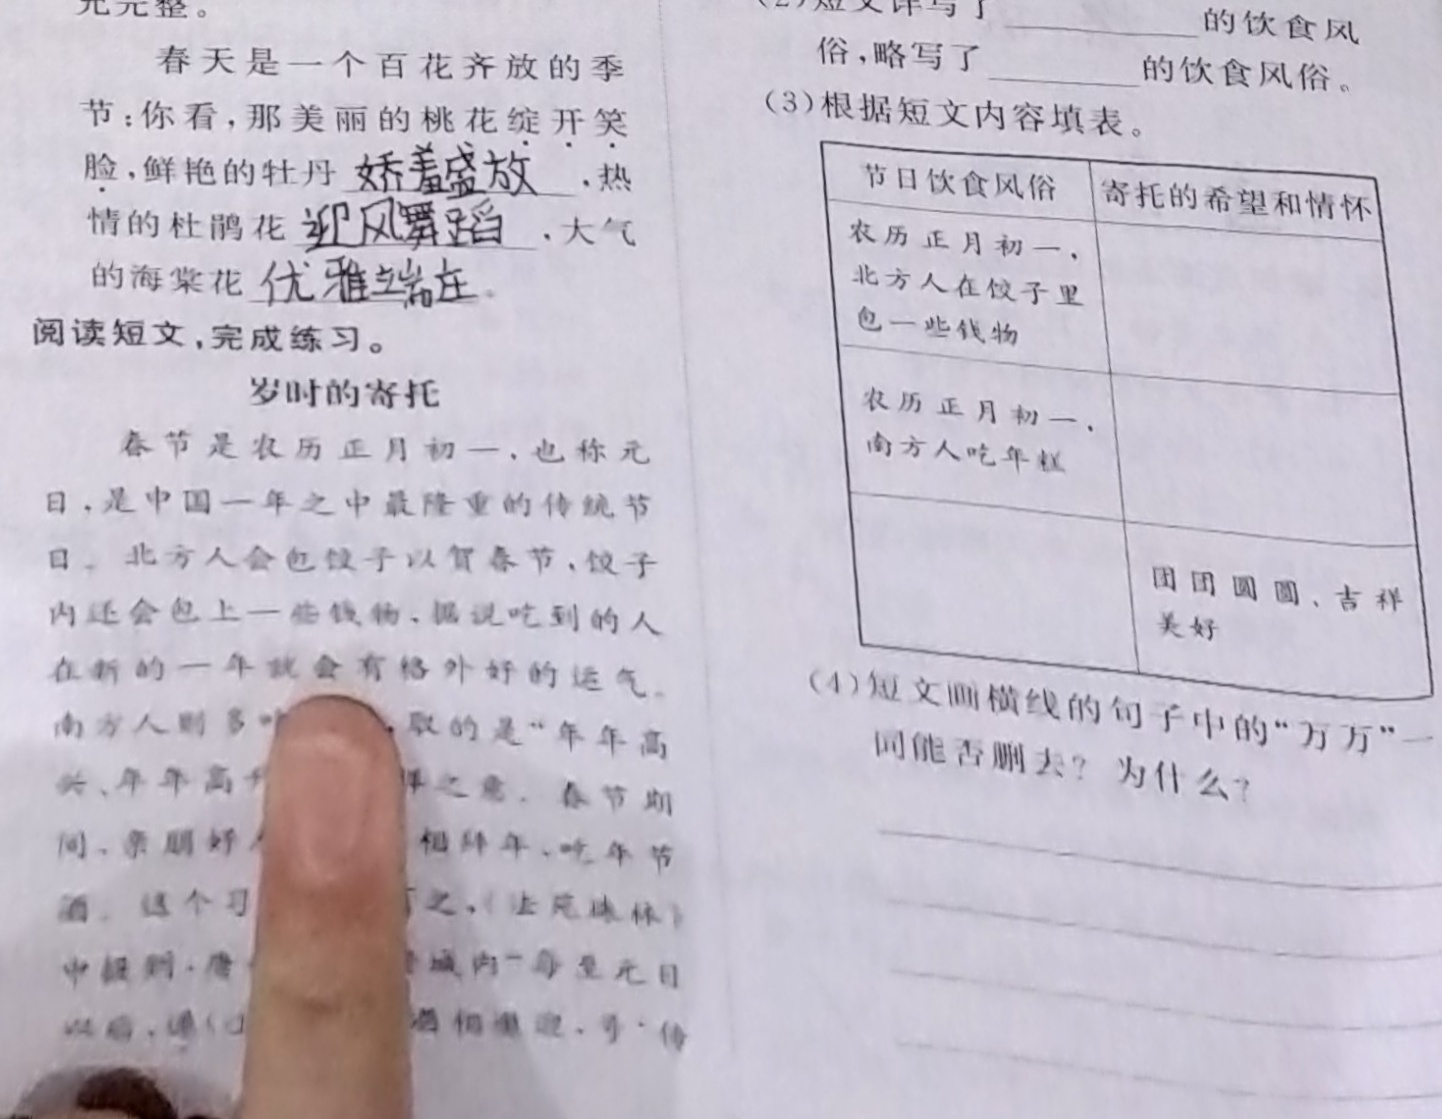 完整。
春天是一个百花齐放的季
节:你看,那美丽的桃花绽开笑
脸,鲜艳的牡丹娇羞盛放,热
情的杜鹃花迎风舞蹈,大气
的海棠花优雅端庄。
阅读短文,完成练习。
岁时的寄托
春节是农历正月初一,也称元
日,是中国一年之中最隆重的传统节
日。北方人会包饺子以贺春节,饺子
内还会包上一些钱物,据说吃到的人
在新的一年就会有格外好的运气。
南方人则多吃,取的是“年年高
兴、年年高升之意。春节期
间,亲朋好相拜年、吃年节
酒。这个习之,《法苑珠林》
中提到,唐城内“每至元日
以后,递相邀迎,号‘传
(2)短文详写了的饮食风
俗,略写了的饮食风俗。
(3)根据短文内容填表。
节日饮食风俗 寄托的希望和情怀
农历正月初一,
北方人在饺子里
包一些钱物
农历正月初一,
南方人吃年糕
团团圆圆、吉祥
美好
(4)短文画横线的句子中的“万万”一
词能否删去?为什么?